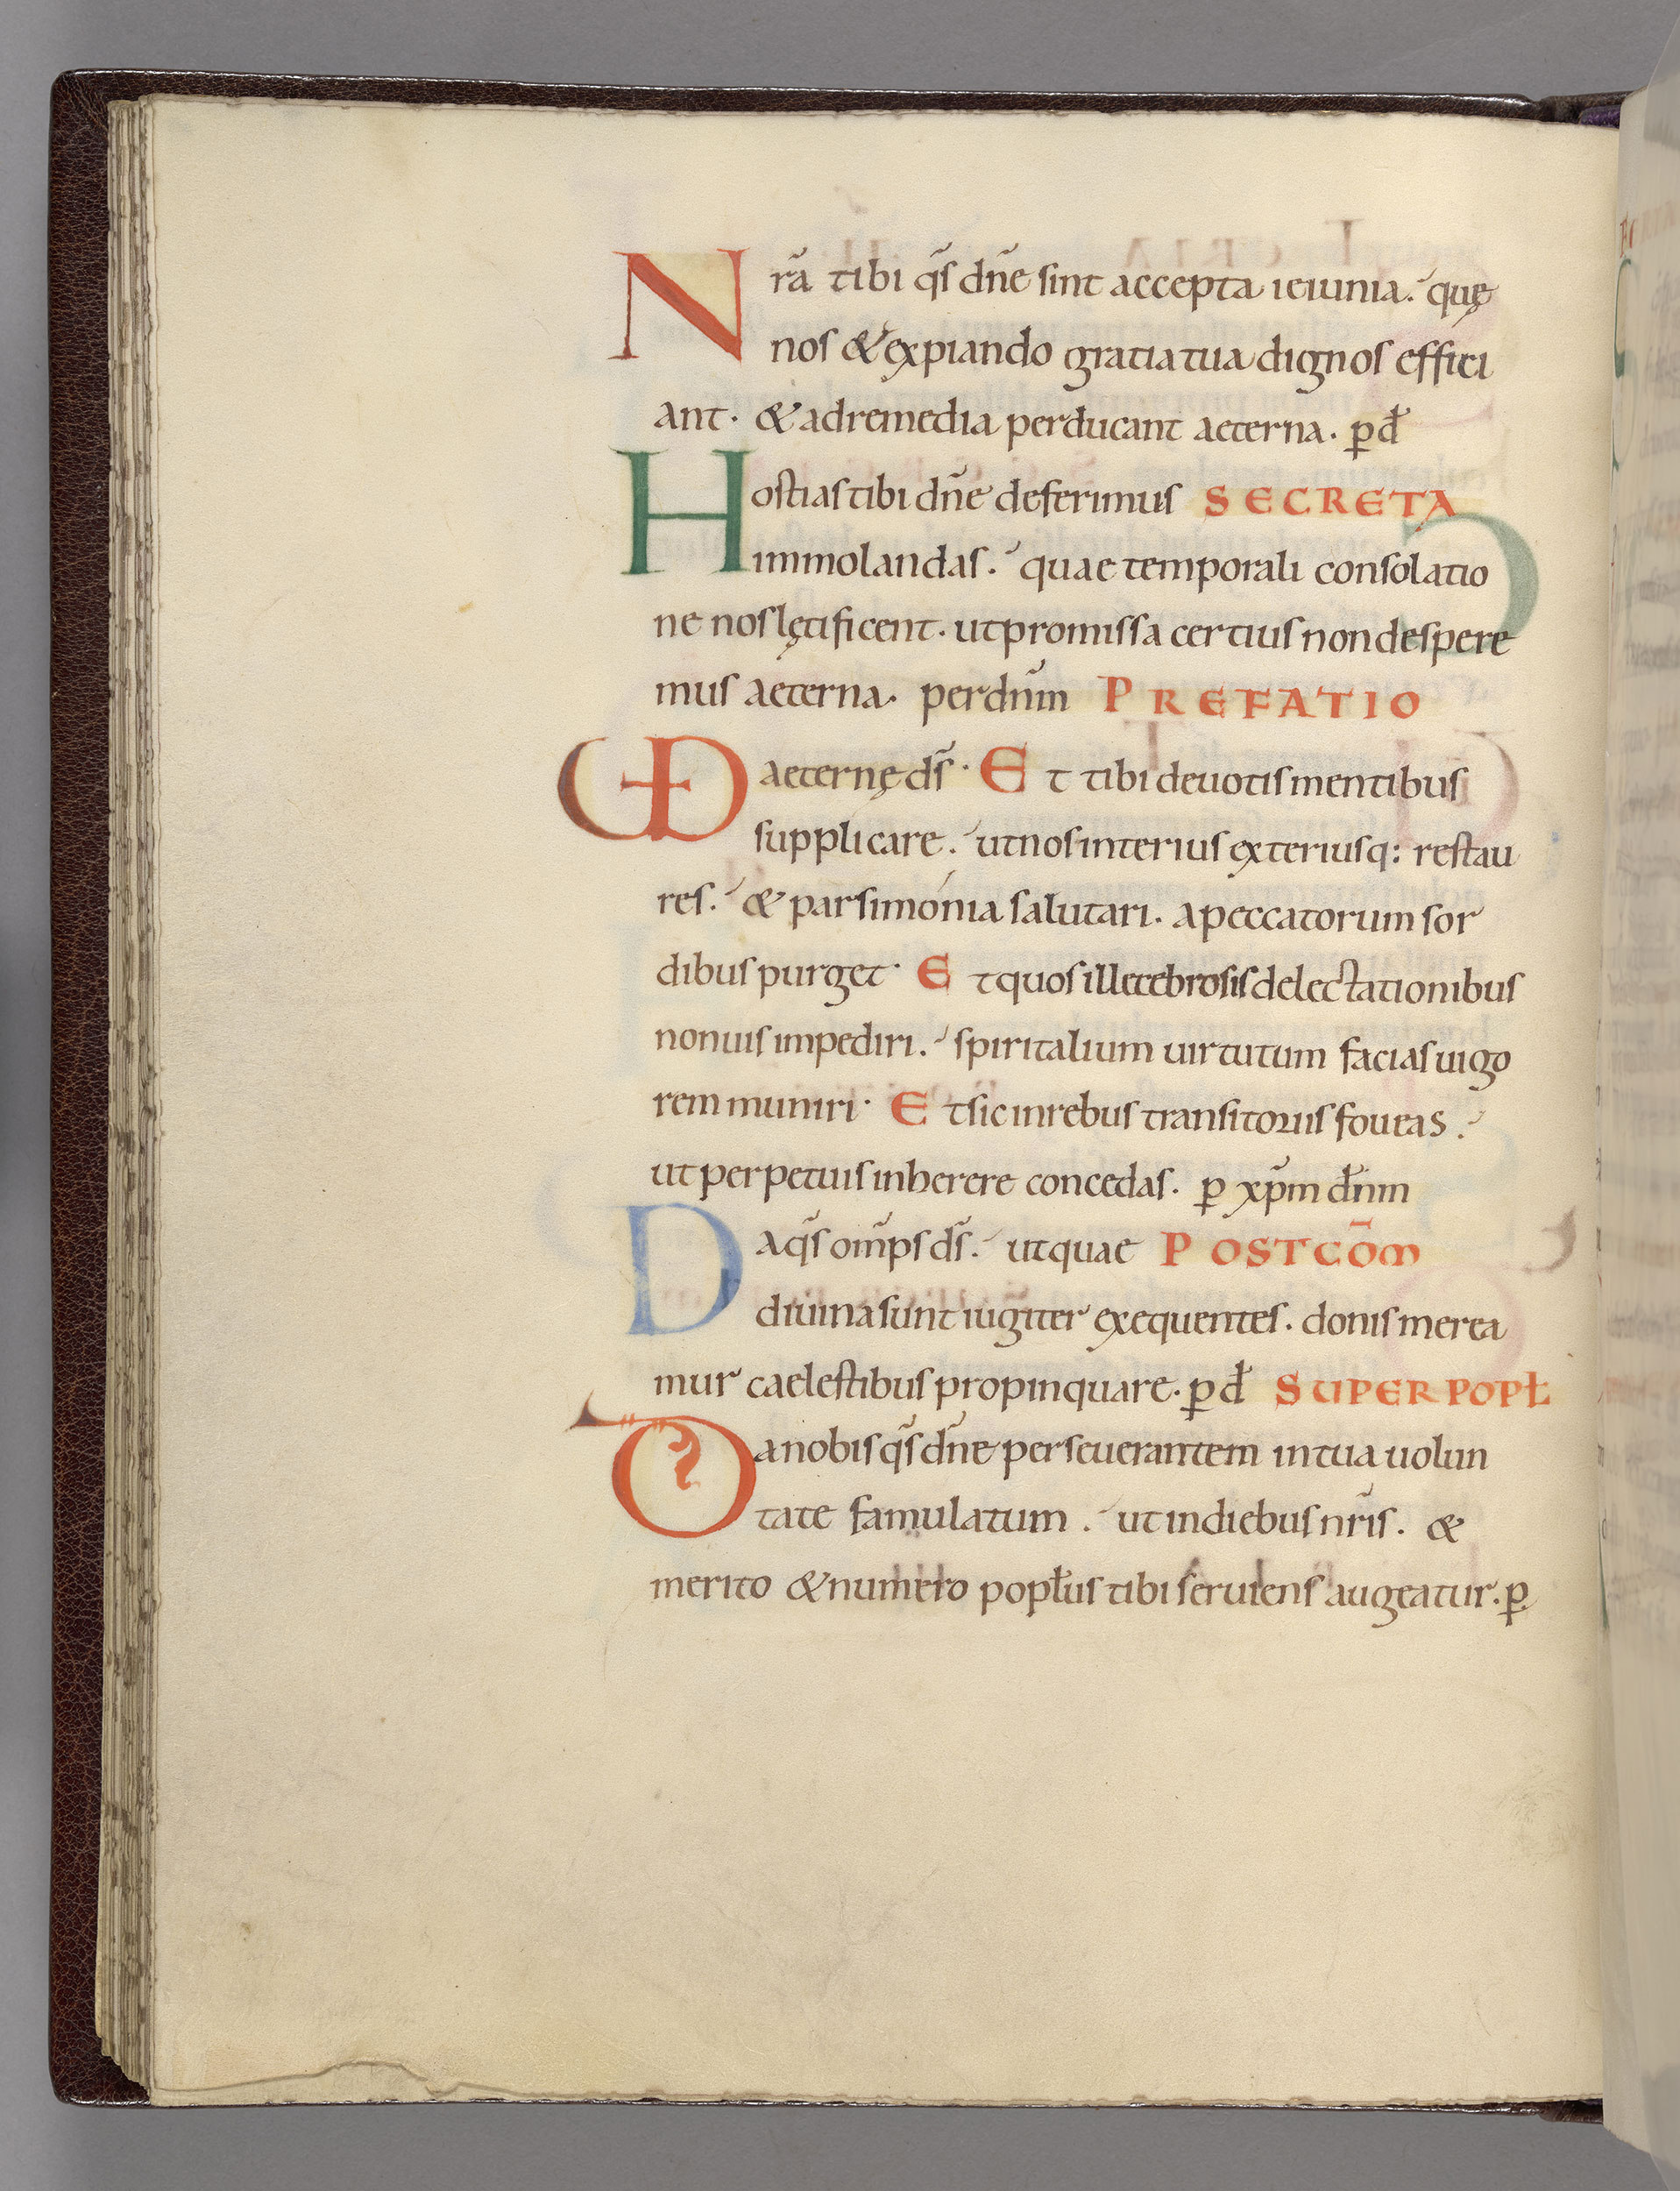 Nr̃a tibi q̃s dñe sint accepta ieiunia. quę
nos & expiando gratia tua dignos effici
ant. & ad remedia perducant aeterna. ꝑ đ
Hostias tibi dñe deferimus SECRETA
immolandas. quae temporali consolatio
ne nos lętificent. ut promissa certius non despere
mus aeterna. per dñm PREFATIO
VD aeternę d̃s. Et tibi deuotis mentibus
supplicare. ut nos interius exteriusq: restau
res. & parsimónia salutari. a peccatorum sor
dibus purget. Et quos illecebrosis delectationibus
non uis impediri. spiritalium uirtutum facias uigo
rem muniri. Et sic in rebus transitoriis foueas.
ut perpetuis inherere concedas. ꝑ xp̃m dñm
Da q̃s om̃ps d̃s. ut quae POSTCŌM
diuina sunt iugiter exequentes. donis merea
mur caelestibus propinquare. ꝑ đ SUPER POPŁ
Da nobis q̃s dñe perseuerantem in tua uolun
tate famulatum. ut in diebus nr̃is. &
merito & numero popłus tibi seruiens augeatur. ꝑ